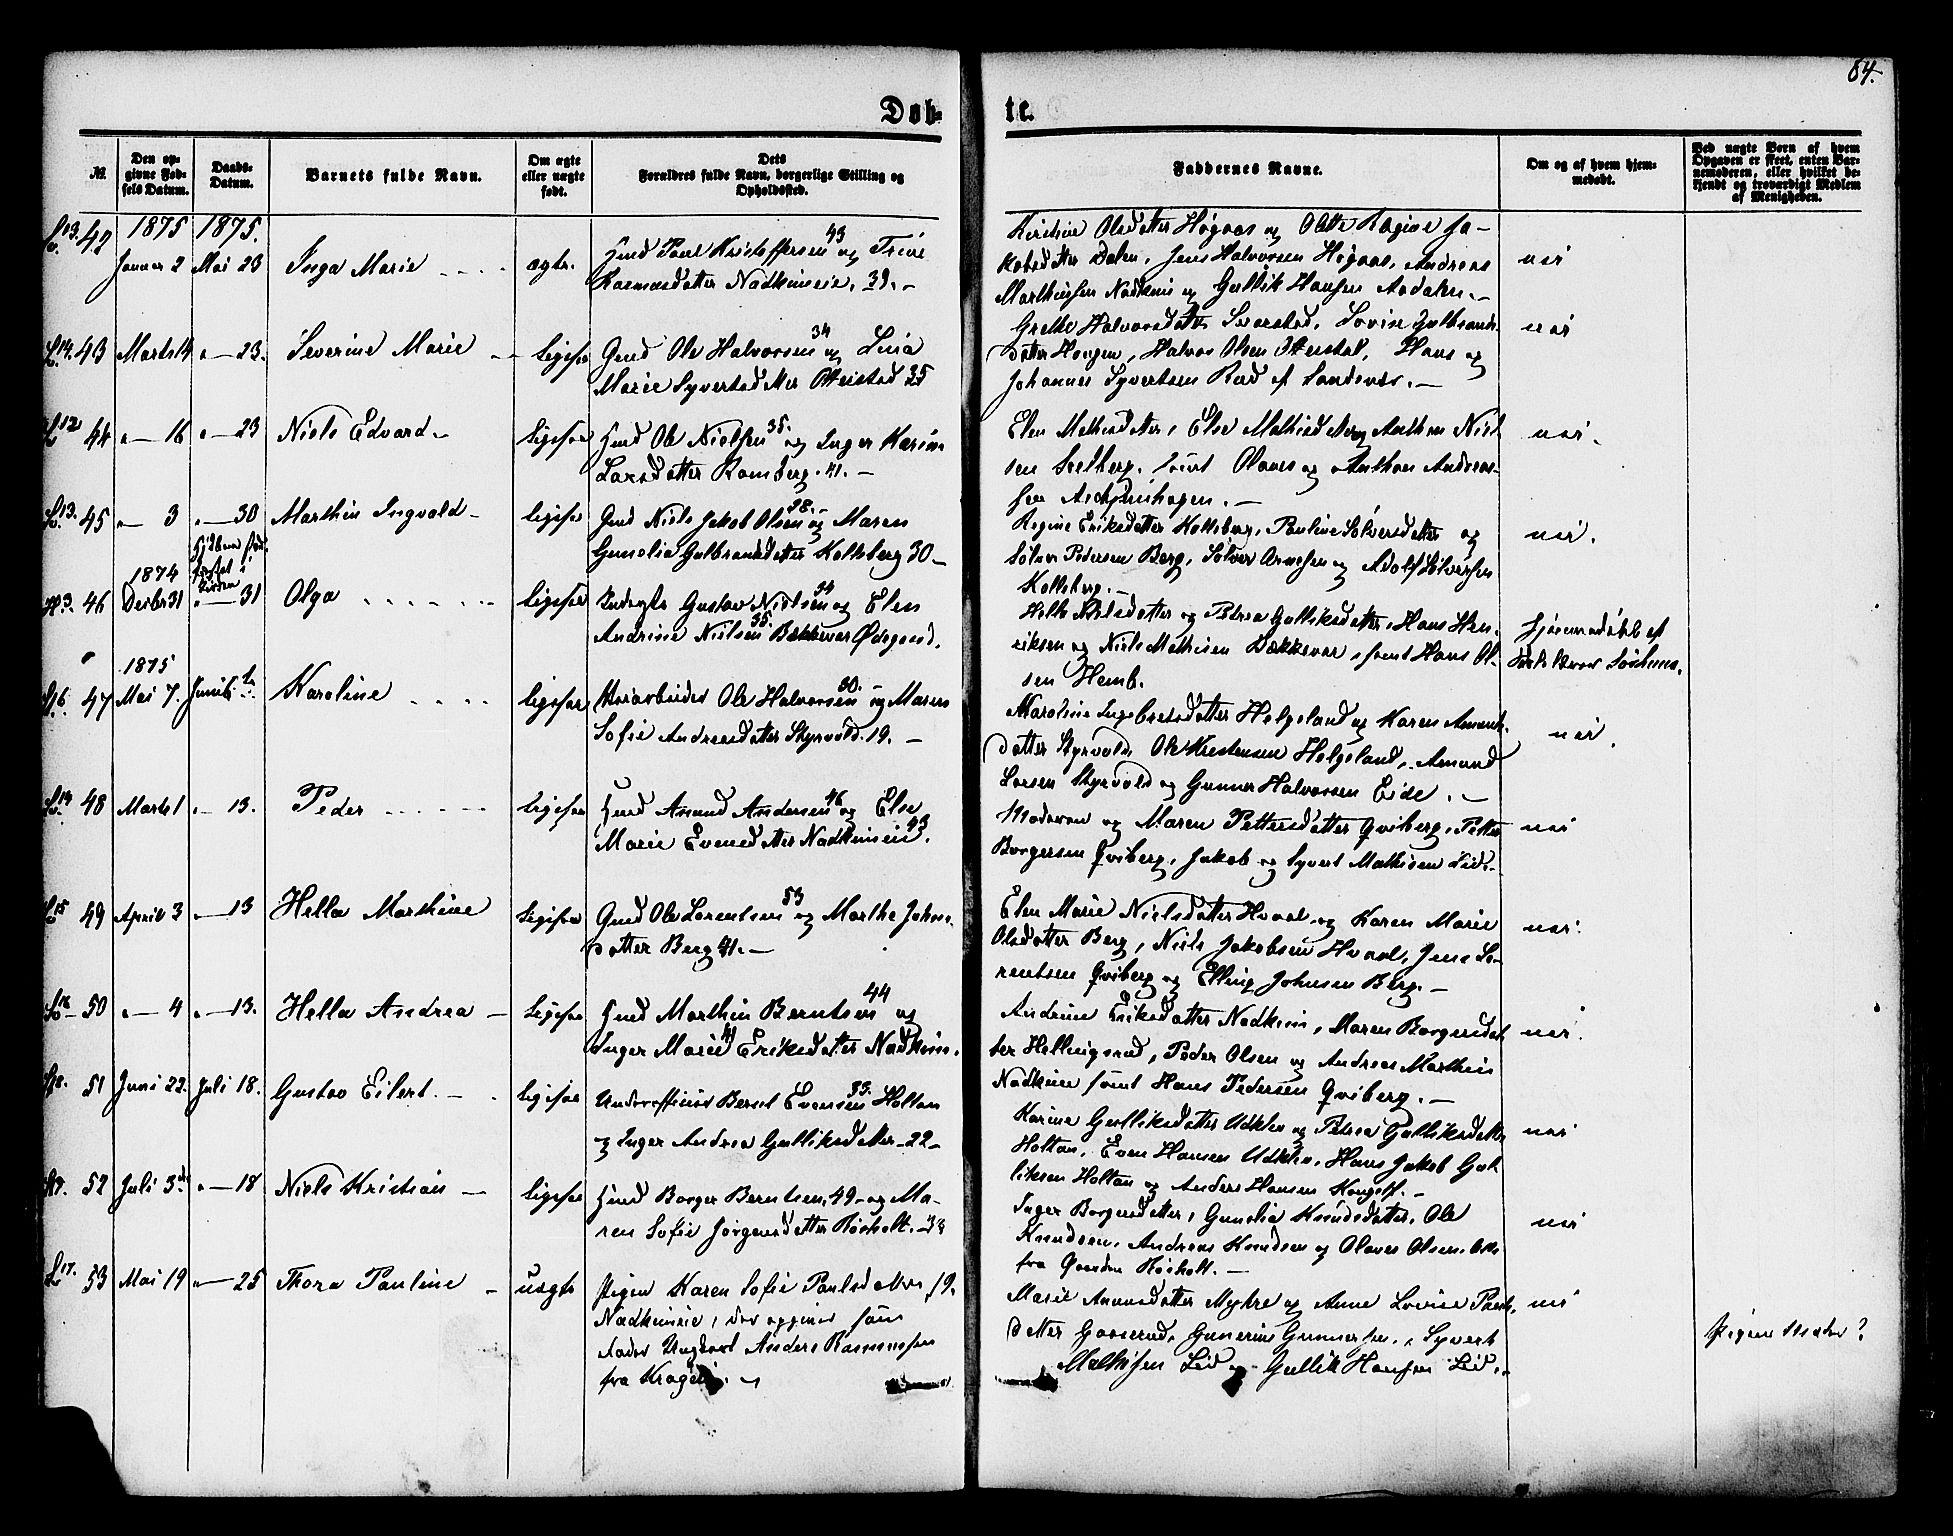 84.
Døb-
te.
№.
Den op-
givne Fød-
sels Datum.
Daabs-
Datum.
Barnets fulde Navn.
Om ægte
eller uægte
født.
Dets
Forældres fulde Navn, borgerlige Stilling og
Opholdssted.
Faddernes Navne.
Om og af hvem hjem-
medøbt.
Ved uægte Børn af hvem
Opgaven er skeet, enten Bar-
nemoderen, eller hvilket be-
kjendt og troværdigt Medlem
af Menigheden.
1875 1875.
42 Januar 2 Mai 23 Inga Marie ægte.
Gmd Poul Kristoffersen 43 og Trine
Rasmusdatter Nadkimeie. 39.
Kirstine Olsdatter Høgaas og Olette Regine Ja-
kobsdatter Dalen, Jens Halvorsen Høgaas, Andreas
Marthinsen Nadkim og Gullik Hansen Aadalen.
nei
43 Marts 14 " 23. Severine Marie ligesaa
Gmd Ole Halvorsen 34 og Lina
Marie Syvertsdatter Otterstad 35
Grethe Halvorsdatter, Lovise Gulbrands-
datter Haugen, Halvor Olsen Otterstad, Hans og
Johannes Syvertsen Rød af Sandsvær.
nei
44 " 16 " 23 Niels Edvard ligesaa
Gmd Ole Nielsen 35. og Inger Karine
Larsdatter Ramberg. 41.
Elen Mathisdatter, Else Mathisdatter og Anthon Niel-
sen, samt Olaves og Anthon Andreas-
sen
nei.
45 " 3 " 30 Marthin Ingvald ligesaa
Gmd Niels Jakob Olsen 28. og Maren
Gunelia Gulbrandsdatter Kolsberg 30
Regine Eriksdatter Kolsberg, Pauline Sølversdatter og
Sølver Pedersen Berg, Sølver Arnesen og Adolf Sølversen
Kolsberg.
nei.
1874
46 Decbr 31 " 31 Olga ligesaa
Inderste Gustav Nielsen 34 og Elen
Andrine Nielsen 35. Bækkevar Ødegaard.
Helle Nielsdatter og Petrea Gulliksdatter, Hans Hen-
riksen og Niels Mathisen Bækkevar, samt Hans Ol-
sen Hemb.
hjemmedøbt af
1875
47 Mai 7. Juni 6te Karoline ligesaa
Ole Halvorsen 30. og Maren
Sofie Andreasdatter Styrvold. 19.
Karoline Ingebretsdatter Helgeland og Karen Amunds-
datter Styrvold, Ole Kristensen Helgeland, Amund
Larsen Styrvold og Gunner Halvorsen Eide.
nei.
48 Marts 1 " 13. Peder ligesaa
Gmd Amund Andersen 46 og Else
Marie Evensdatter Nadkimeie 43.
Moderen og Maren Pettersdatter Qviberg, Petter
Borgersen Qviberg, Jakob og Syvert Mathisen Lid.
nei
49 April 3 " 13 Hella Marthine ligesaa
Gmd Ole Lorentsen 53 og Marthe Johns-
datter Berg 41.
Elen Marie Nielsdatter Hvaal og Karen Marie
Olsdatter Berg, Niels Jakobsen Hvaal, Jens Lo-
rentsen Qviberg og Elling Johnsen Berg.
nei.
50 " 4 " 13. Hella Andrea ligesaa
Gmd Marthin Berntsen 44 og
Inger Marie Eriksdatter Nadkim.
Andrine Eriksdatter Nadkim, Maren Borgersdat-
ter Hellingsrud, Peder Olsen og Andreas Marthin
Nadkim samt Hans Pedersen Qviberg.
nei.
51 Juni 22. Juli 18. Gustav Eilert. ligesaa
Underofficier Bernt Evensen 33. Holtan
og Inger Andrea Gulliksdatter 22
Karine Gulliksdatter Udklev og Petrea Gulliksdatter
Holtan, Even Hansen Udklev, Hans Jakob Gul-
liksen Holtan og Anders Hansen
nei
52 Juli 3die " 18 Niels Kristian ligesaa
Gmd Borger Berntsen 49 og Ma-
ren Sofie Jørgensdatter Røsholt. 38
Inger Borgersdatter, Gunelia Knudsdatter, Ole
Knudsen, Andreas Knudsen og Olaves Olsen alle
fra Røsholt.
nei
53 Mai 19 " 25 Thora Pauline uægte
Pigen Karen Sofie Paulsdatter 19.
Nadkimeie, der opgiver som
Fader Ungkarl Anders Rasmussen
fra Kragerø.
Marie Amundsdatter Myhre og Anne Lovise Pauls-
datter Gaaserud, Gunerius Gunnersen, Syvert
Mathisen Lid og Gullik Hansen Lid.
nei
Pigens Moder?